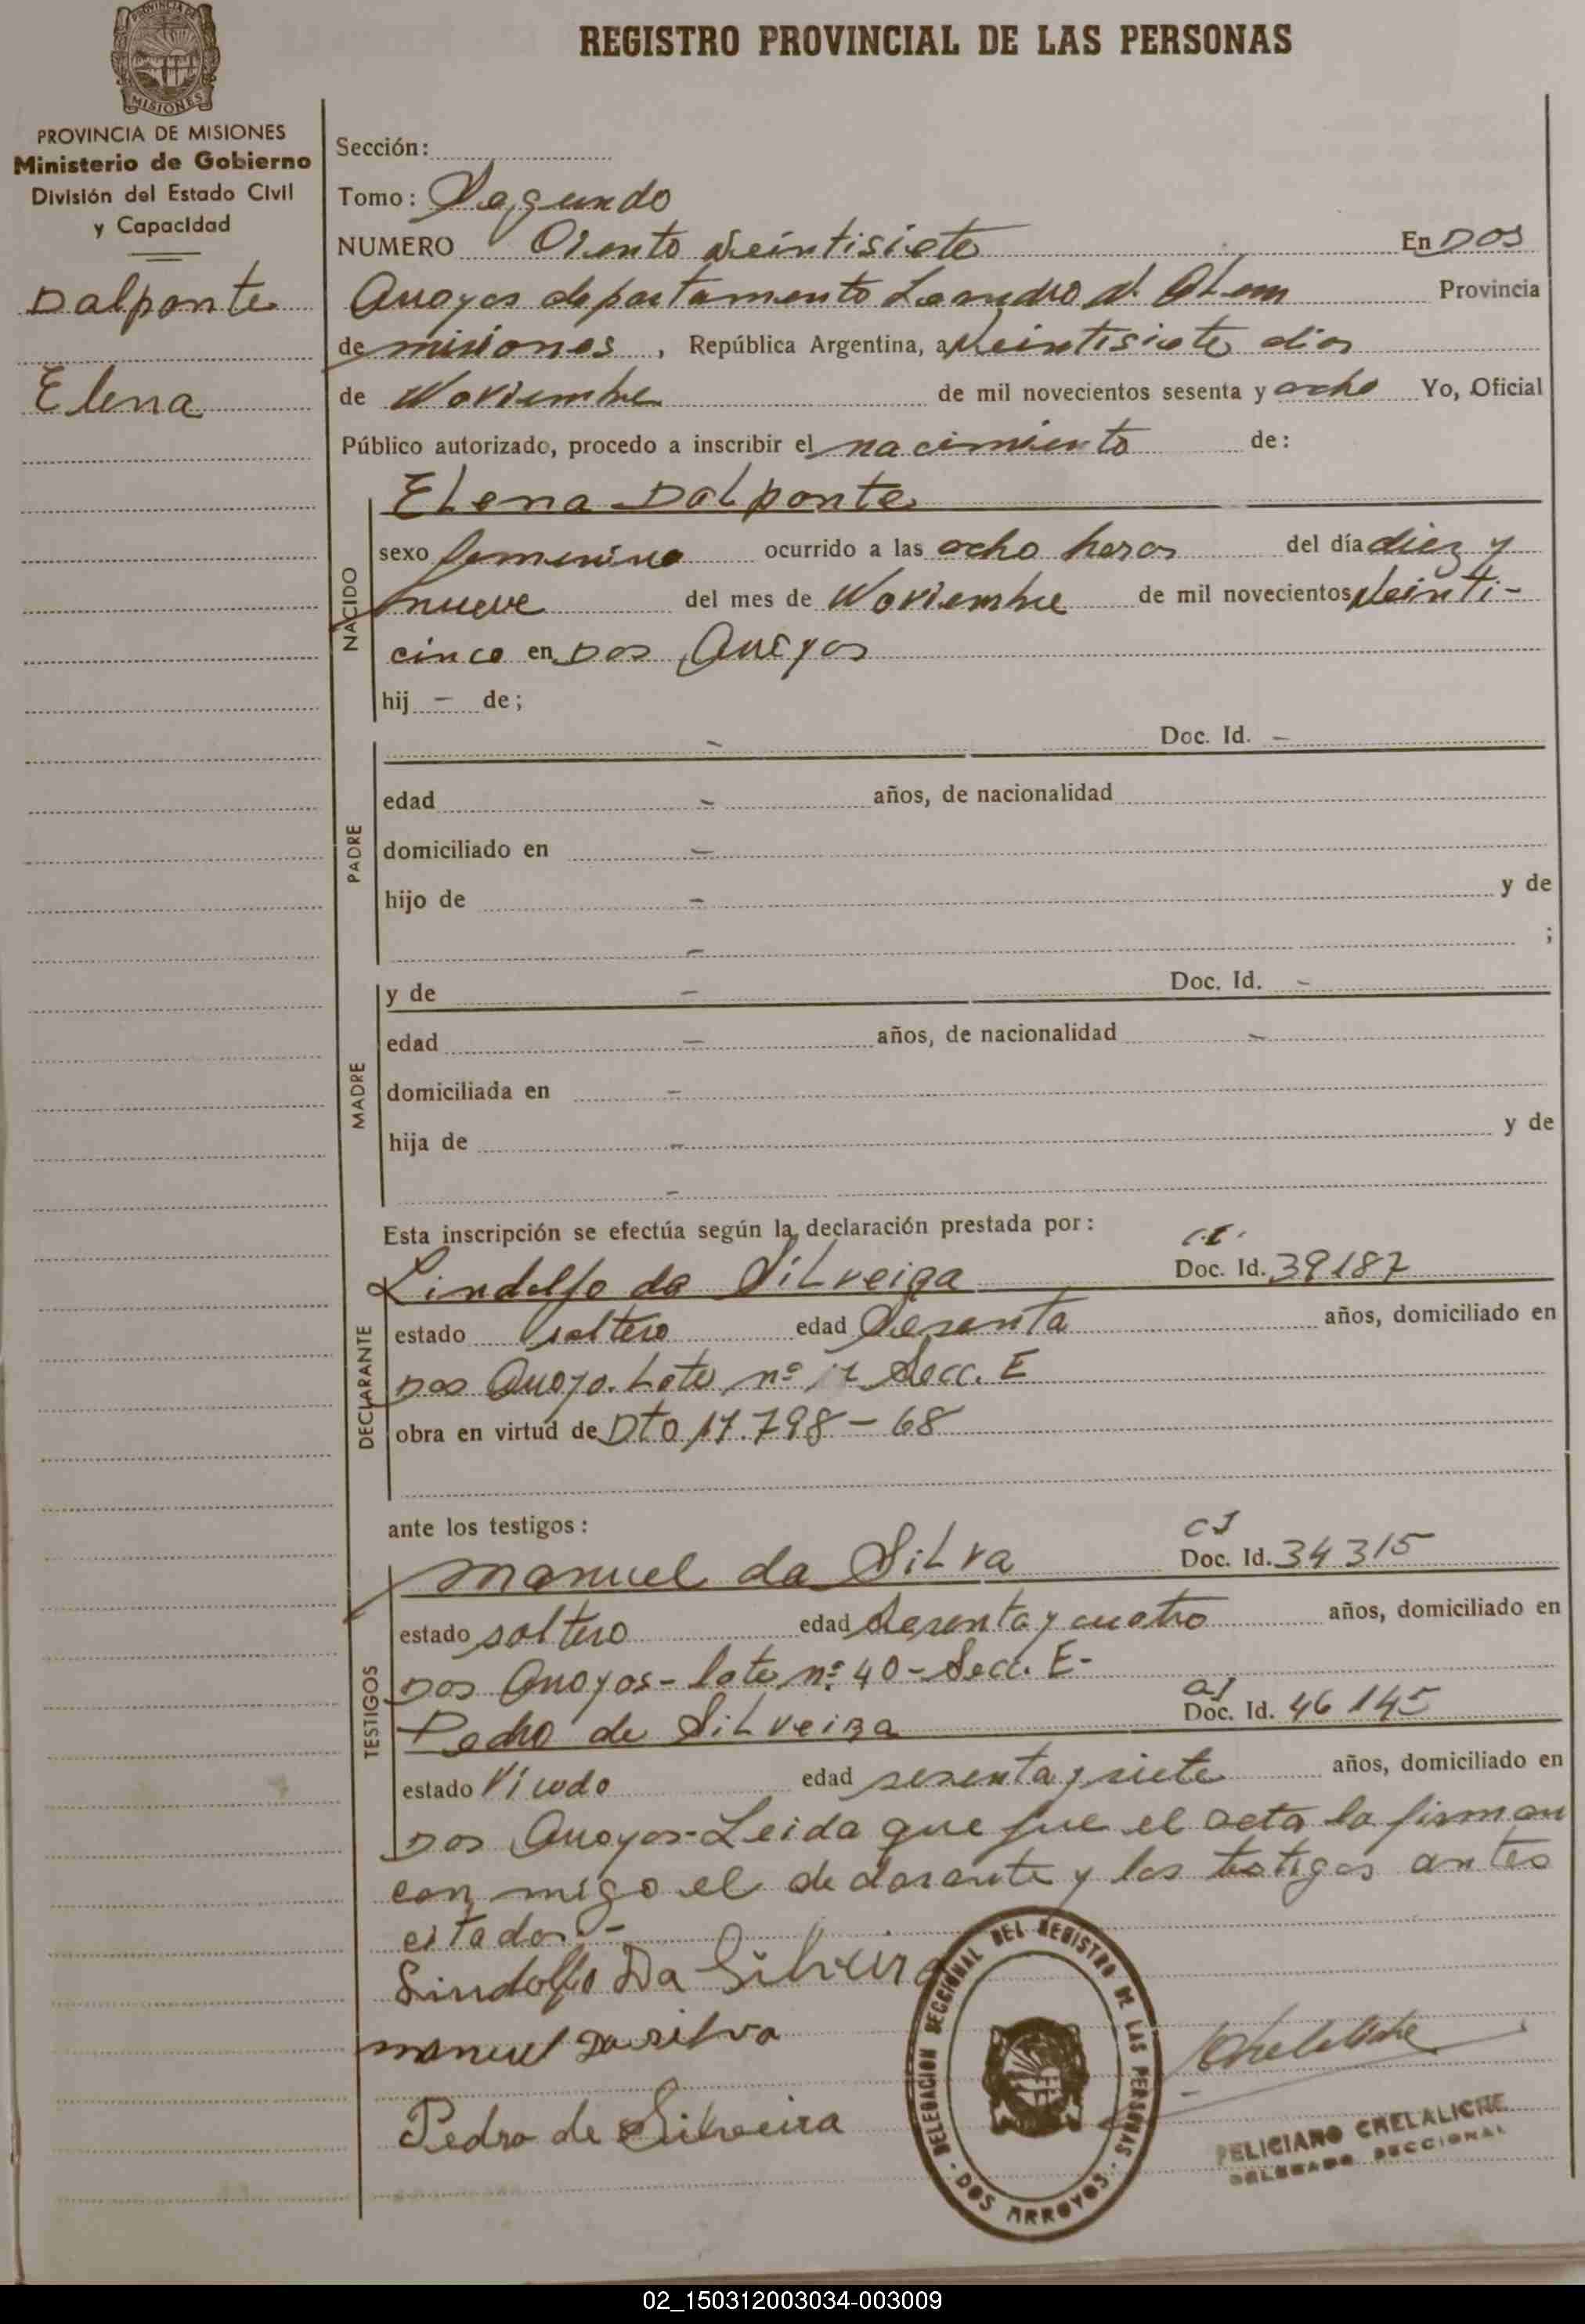 REGISTRO PROVINCIAL DE LAS PERSONAS
PROVINCIA DE
MISIONES
PROVINCIA DE MISIONES
Ministerio de Gobierno
División del Estado Civil
y Capacidad
Dalponte
Elena
Sección:
Tomo: Segundo
NUMERO Ciento Veintisiete En Dos
Arroyos departamento Leandro N. Alem Provincia
de misiones, República Argentina, a Veintisiete dias
de Noviembre de mil novecientos sesenta y ocho Yo, Oficial
Público autorizado, procedo a inscribir el nacimiento de:
NACIDO
Elena Dalponte
sexo femenino ocurrido a las ocho horas del día diez y
nueve del mes de Noviembre de mil novecientos Veinti-
cinco en Dos Arroyos
hij - de;
PADRE
- Doc. Id. -
edad - años, de nacionalidad
domiciliado en -
hijo de - y de
- ;
MADRE
y de - Doc. Id. -
edad - años, de nacionalidad -
domiciliada en -
hija de - y de
-
Esta inscripción se efectúa según la declaración prestada por:
DECLARANTE
C.I.
Lindolfo da Silveira Doc. Id. 39187
estado soltero edad Sesenta años, domiciliado en
Dos Arroyo. Lote nº Secc. E
obra en virtud de Dto 17.798-68
ante los testigos:
TESTIGOS
CI
manuel da Silva Doc. Id. 34315
estado soltero edad Sesenta y cuatro años, domiciliado en
Dos Arroyos - lote nº 40 - Secc. E-
CI
Pedro de Silveira Doc. Id. 46145
estado Viudo edad sesenta y siete años, domiciliado en
Dos Arroyos - Leida que fue el acta la firman
con migo el declarante y los testigos antes
citados-
Lindolfo Da Silveira
manuel Da silva
Pedro de Silveira
DELEGACION SECCIONAL DEL REGISTRO DE LAS PERSONAS
- DOS ARROYOS -
Chelaliche
FELICIANO CHELALICHE
DELEGADO SECCIONAL
02_150312003034-003009